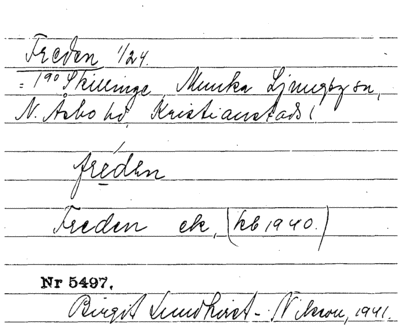 Freden 1/24.
: 1⁹⁰ Skillinge, Munka Ljungby sn,
N. Åsbo hd, Kristianstads l
fréden
Freden ek, (kb 1940.)
Nr 5497,
Birgit Lundkvist-Nilsson, 1941.